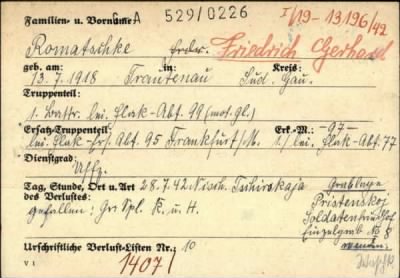 Familien- u. Vorname: A 529/0226 I/19-13196/42
Romatschke Friedrich Gerhard
geb. am: in: Kreis:
13.7.1918 Trautenau Sud. Gau.
Truppenteil:
1. Battr. lei. Flak-Abt. 99 (mot. gl.)
Ersatz-Truppenteil: Erk.-M.: -97-
lei. Flak-Ers. Abt. 95 Frankfurt/M. 1./lei. Flak-Abt. 77
Dienstgrad:
Uffz.
Tag, Stunde, Ort u. Art 28.7.42 Nisch. Tschirskaja Grablage
des Verlustes: Pristenskoj
gefallen: Gr. Spl. K. u. H. Soldatenfriedhof
Einzelgrab No 8
Urschriftliche Verlust-Listen Nr.: 10
V 1 1407/